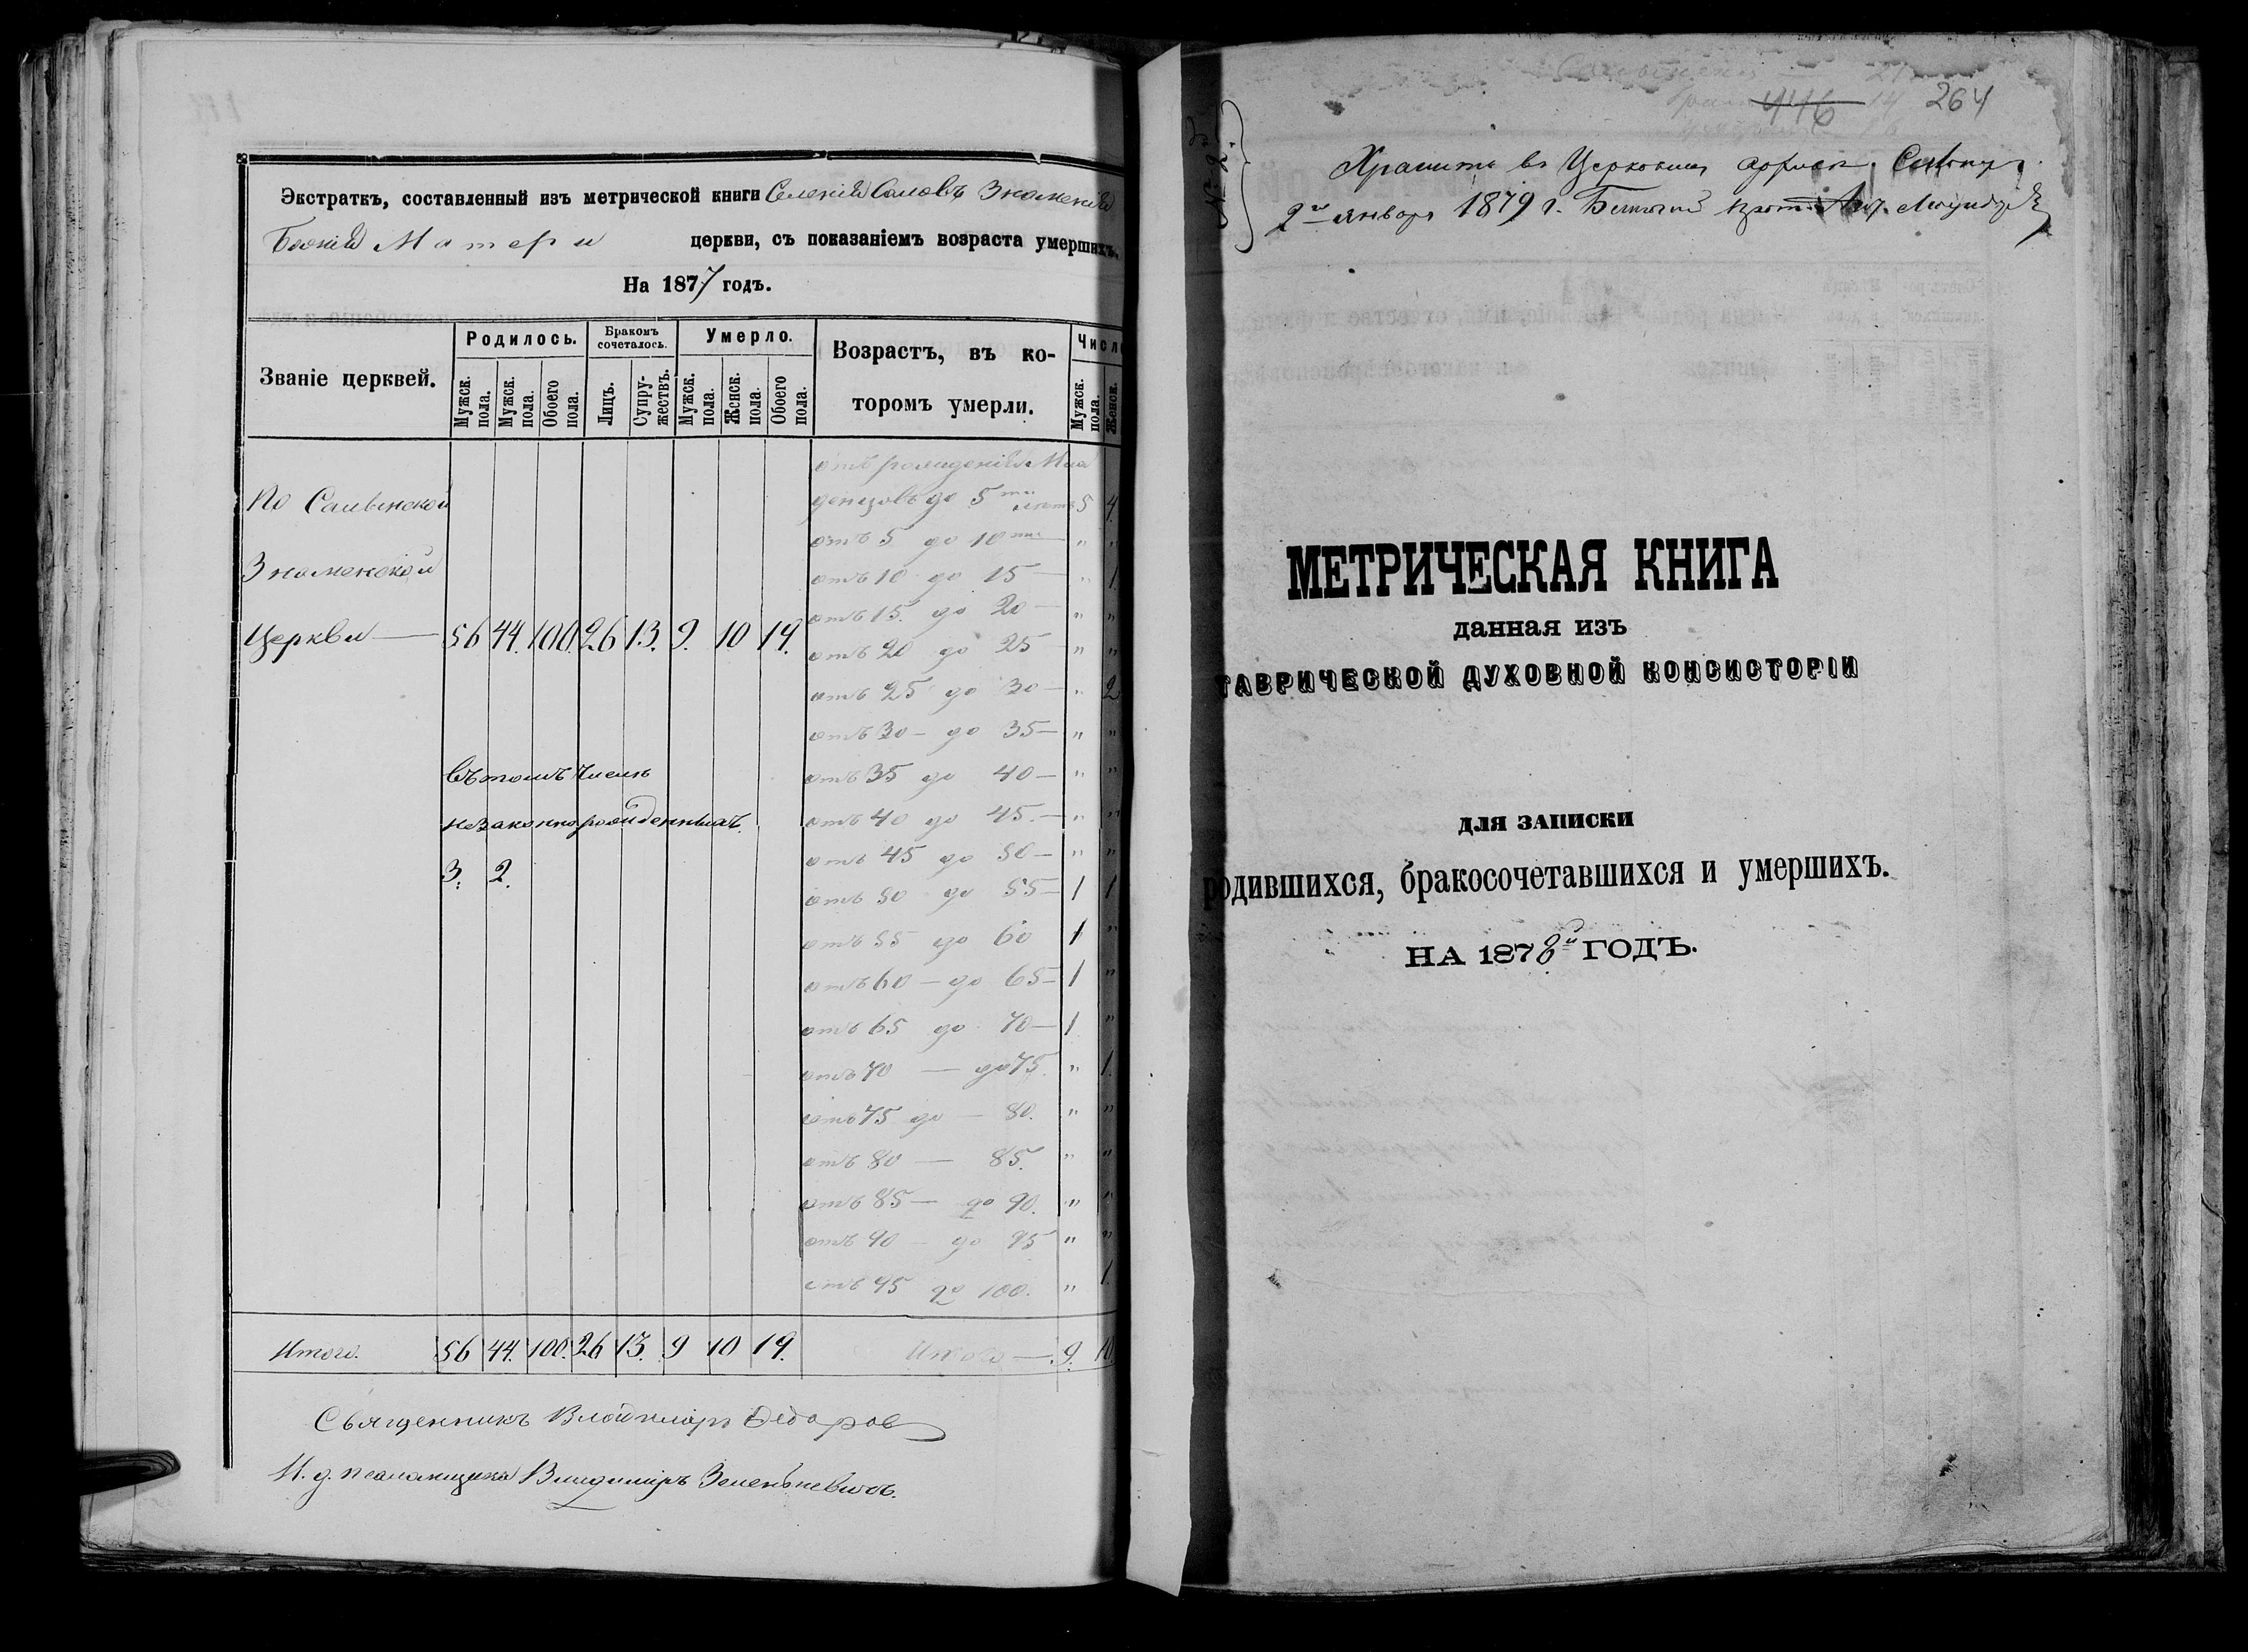 Экстрактъ, составленный изъ метрической книги Селенія Саловъ Знаменія
Божіей Матери церкви, съ показаніемъ возраста умершихъ.
На 1877 годъ.
Званіе церквей.
Родилось.
Бракомъ сочеталось.
Умерло.
Возрастъ, въ которомъ умерли.
Число
Мужск. пола.
Мужск. пола.
Обоего пола.
Лицъ.
Супружествъ.
Мужск. пола.
Женск. пола.
Обоего пола.
Мужск. пола.
Женск.
отъ рожденія Мла
денцовъ до 5ти лѣтъ 5 4
По
отъ 5 до 10ти — " "
Знаменской
отъ 10 до 15 — " 1
отъ 15. до 20 — " "
Церкви — 56 44. 100. 26 13. 9. 10 19.
отъ 20 до 25 — " "
отъ 25 до 30 — " 2
отъ 30 — до 35 — " "
Въ томъ числѣ
отъ 35 до 40 — " "
незаконнорожденныхъ.
отъ 40 до 45. — " "
3. 2.
отъ 45 до 50 — " "
отъ 50 до 55 — 1 1
отъ 55 до 60 1 "
отъ 60 — до 65 — 1 "
отъ 65 до 70 — 1 "
отъ 70 — до 75. " 1.
отъ 75 до — 80. " "
отъ 80 — 85. " "
отъ 85 — до 90. " "
отъ 90 — до 95 " "
отъ 95 до 100. " 1.
Итого. 56 44. 100. 26 13. 9 10 19. Итого — 9. 10.
Священникъ Владиміръ Федоров
И. д. псаломщика Владиміръ
446 14 264
№ 2.
Хранить въ Церковном
2го января 1879 г.
МЕТРИЧЕСКАЯ КНИГА
данная изъ
ТАВРИЧЕСКОЙ ДУХОВНОЙ КОНСИСТОРІИ
для записки
родившихся, бракосочетавшихся и умершихъ.
НА 1878й ГОДЪ.